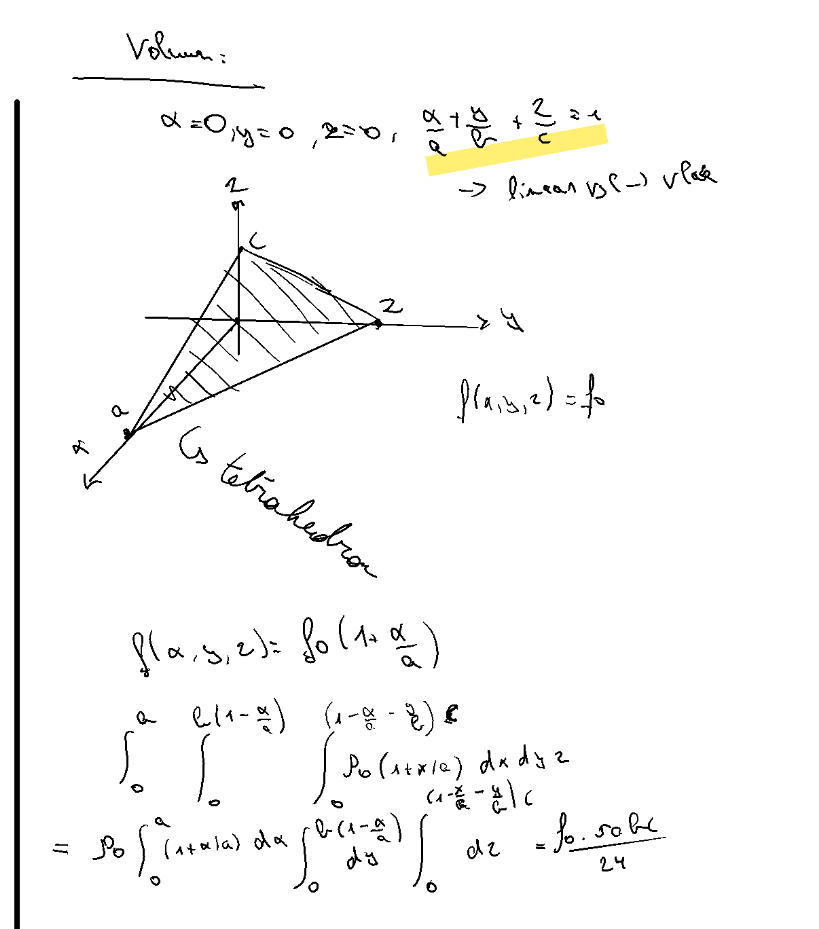 Volumen:
x=0, y=0, z=0, x/a + y/b + z/c = 1
→ linear vgl → vlak
z
c
z
y
a
x
↳ tetrahedron
ρ(x,y,z) = ρ0
ρ(x,y,z) = ρ0 (1 + x/a)
∫_0^a ∫_0^{b(1-x/a)} ∫_0^{(1-x/a-y/b)c} ρ0 (1+x/a) dx dy z
= ρ0 ∫_0^a (1+x/a) dx ∫_0^{b(1-x/a)} dy ∫_0^{(1-x/a-y/b)c} dz = ρ0 · 5abc / 24